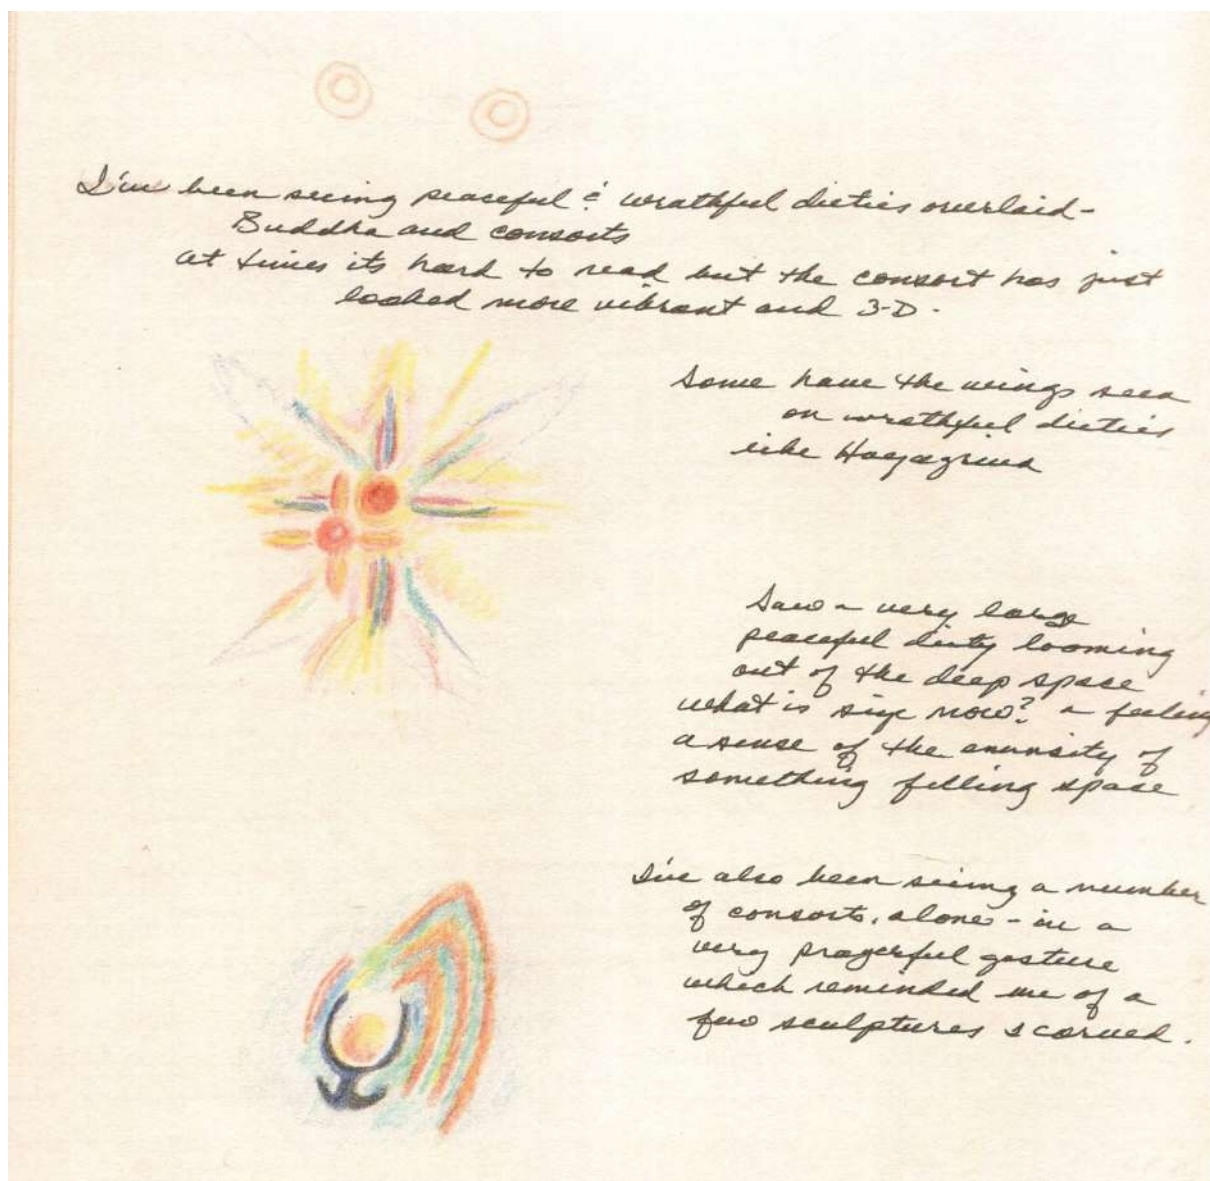 I've been seeing peaceful & wrathful dieties overlaid-
Buddha and consorts
at times its hard to read but the consort has just
looked more vibrant and 3-D.
Some have the wings seen
on wrathful dieties
like Hayagriva
Saw a very large
peaceful diety looming
out of the deep space
what is size now? a feeling
a sense of the emunsity of
something filling space
I've also been seeing a number
of consorts, alone - in a
very prayerful gesture
which reminded me of a
few sculptures I carved.